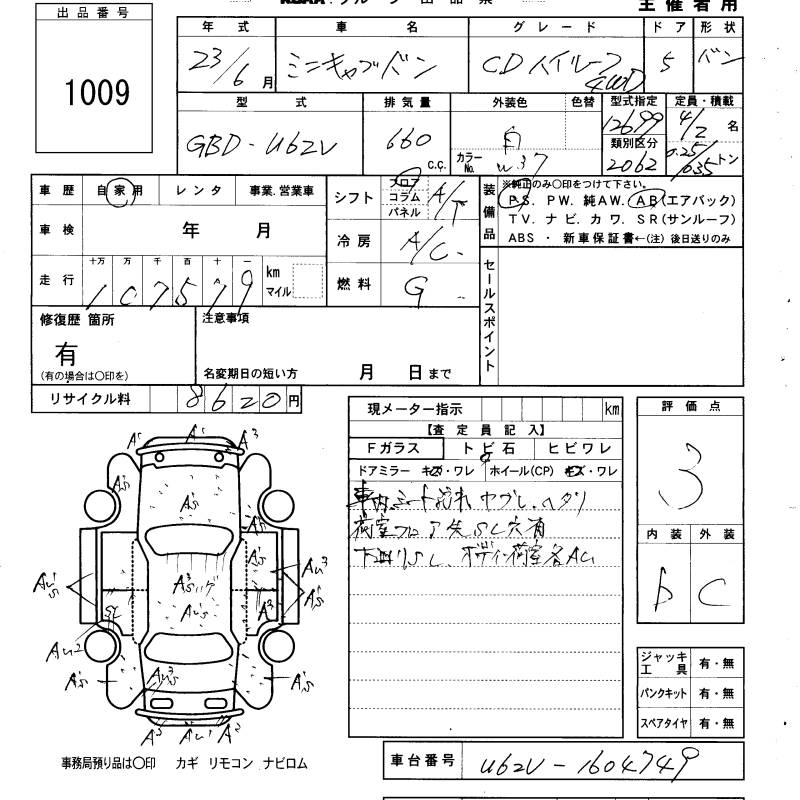 出品番号
1009
主催者用
年式 車名 グレード ドア 形状
23/6月 ミニキャブバン CDハイルーフ 4WD 5 バン
型式 排気量 外装色 色替 型式指定 定員・積載
GBD-U62V 660 c.c. 白 カラーNo. W37 12699 4/2名
類別区分
2062 0.25/0.35トン
車歴 自家用 レンタ 事業.営業車
シフト フロア コラム パネル A/T
装備品
※純正のみ○印をつけて下さい。
P.S. P.W. 純A.W. A.B(エアバック)
T.V. ナビ. カワ. S.R(サンルーフ)
ABS ・ 新車保証書←(注) 後日送りのみ
車検 年 月
冷房 A/C
走行 十万 万 千 百 十 一
107579 km マイル
燃料 G
セールスポイント
修復歴 箇所
有
(有の場合は○印を)
注意事項
名変期日の短い方 月 日まで
リサイクル料 8620円
現メーター指示 km
【査定員記入】
Fガラス トビ石 ヒビワレ
ドアミラー キズ・ワレ ホイール(CP) キズ・ワレ
車内シート汚れ ヤブレ.ヘタリ
荷室フロア矢SC穴有
下廻りSC
評価点
3
内装 外装
b C
A'S
A3
A3
Au3
Au2
SC
A2
ジャッキ工具 有・無
パンクキット 有・無
スペアタイヤ 有・無
事務局預り品は○印 カギ リモコン ナビロム
車台番号 U62V-1604749